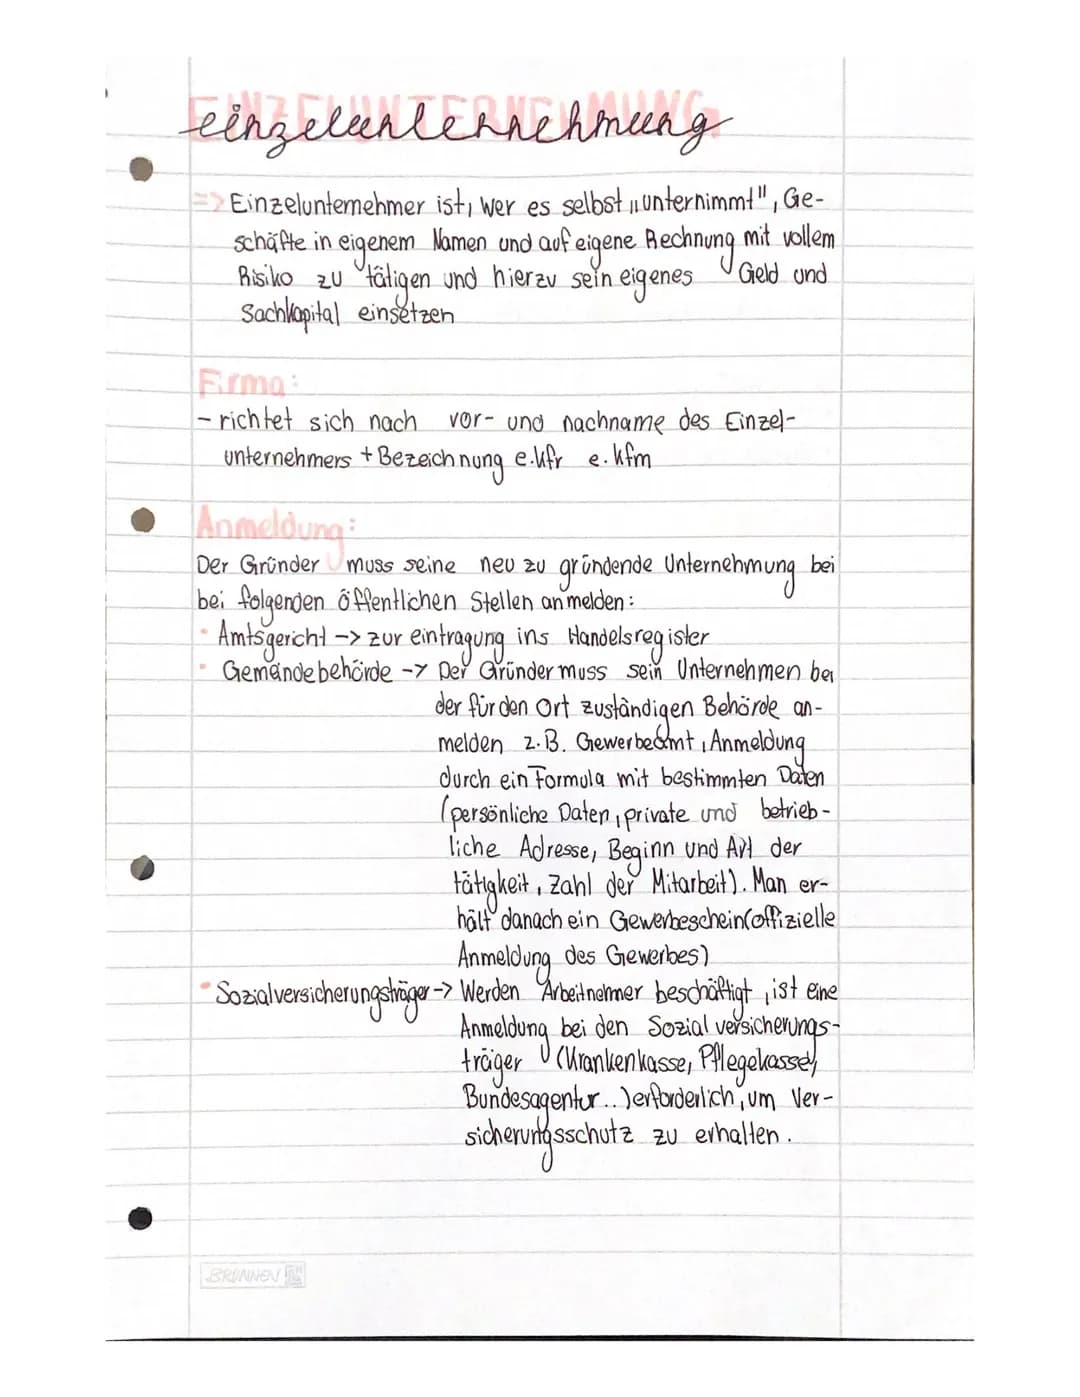 EINZELUNTERNEHMUNG
einzelunternehmung
=> Einzelunternehmer ist, wer es selbst „unternimmt", Ge-
schäfte in eigenem Namen und auf eigene Rechnung mit vollem
Risiko zu tätigen und hierzu sein eigenes Geld und
Sachkapital einsetzen
Firma:
- richtet sich nach vor- und nachname des Einzel-
unternehmers + Bezeichnung e.kfr e.kfm
Anmeldung:
Der Gründer muss seine neu zu gründende Unternehmung bei
bei folgenden öffentlichen Stellen anmelden:
• Amtsgericht -> zur eintragung ins Handelsregister
• Gemeindebehörde -> Der Gründer muss sein Unternehmen bei
der für den Ort zuständigen Behörde an-
melden z.B. Gewerbeamt, Anmeldung
durch ein Formula mit bestimmten Daten
(persönliche Daten, private und betrieb-
liche Adresse, Beginn und Art der
tätigkeit, Zahl der Mitarbeit). Man er-
hält danach ein Gewerbeschein(offizielle
Anmeldung des Gewerbes)
• Sozialversicherungsträger -> Werden Arbeitnehmer beschäftigt, ist eine
Anmeldung bei den Sozialversicherungs-
träger (Krankenkasse, Pflegekasse,
Bundesagentur..) erforderlich, um Ver-
sicherungsschutz zu erhalten.
BRUNNEN